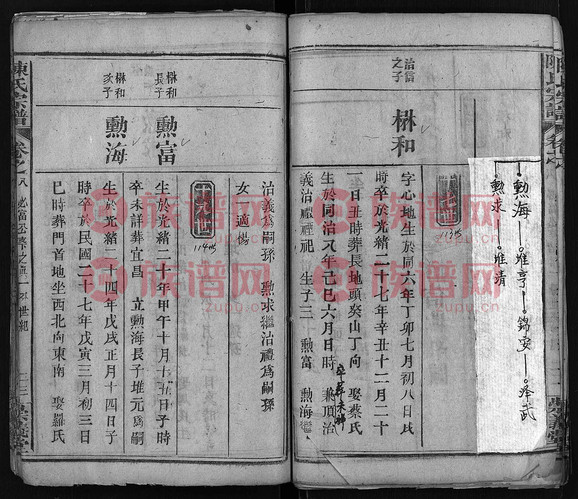 陳氏宗譜
卷之
勲海——堆亨——錦安——泽武
勲求——堆清
治信
之子
楙和
字心地生於同
六年丁卯七月初八日戌
時卒於光緒二十七年辛丑十二月二十
一日丑時葬長地頭癸山丁向 娶蔡氏
生於同治
年己巳六月
日
時
卒葬未詳
兼頂治
義治禮禋祀 生子三 勲富 勲海繼
治義為嗣孫 勲求繼治禮為嗣孫
女 適
楙和
長子
勲富
十九世
114
生於光緒二十年甲午十月十
日子時
卒未詳葬宜昌 立勲海長子堆元為嗣
楙和
次子
勲海
生於光緒
十四年戊戌正月十四日子
時卒於民國二十七年戊寅三月初三日
巳時葬門首地坐西北向東南 娶羅氏
陳氏宗譜
卷之八
世紀
族谱网
www.zupu.cn